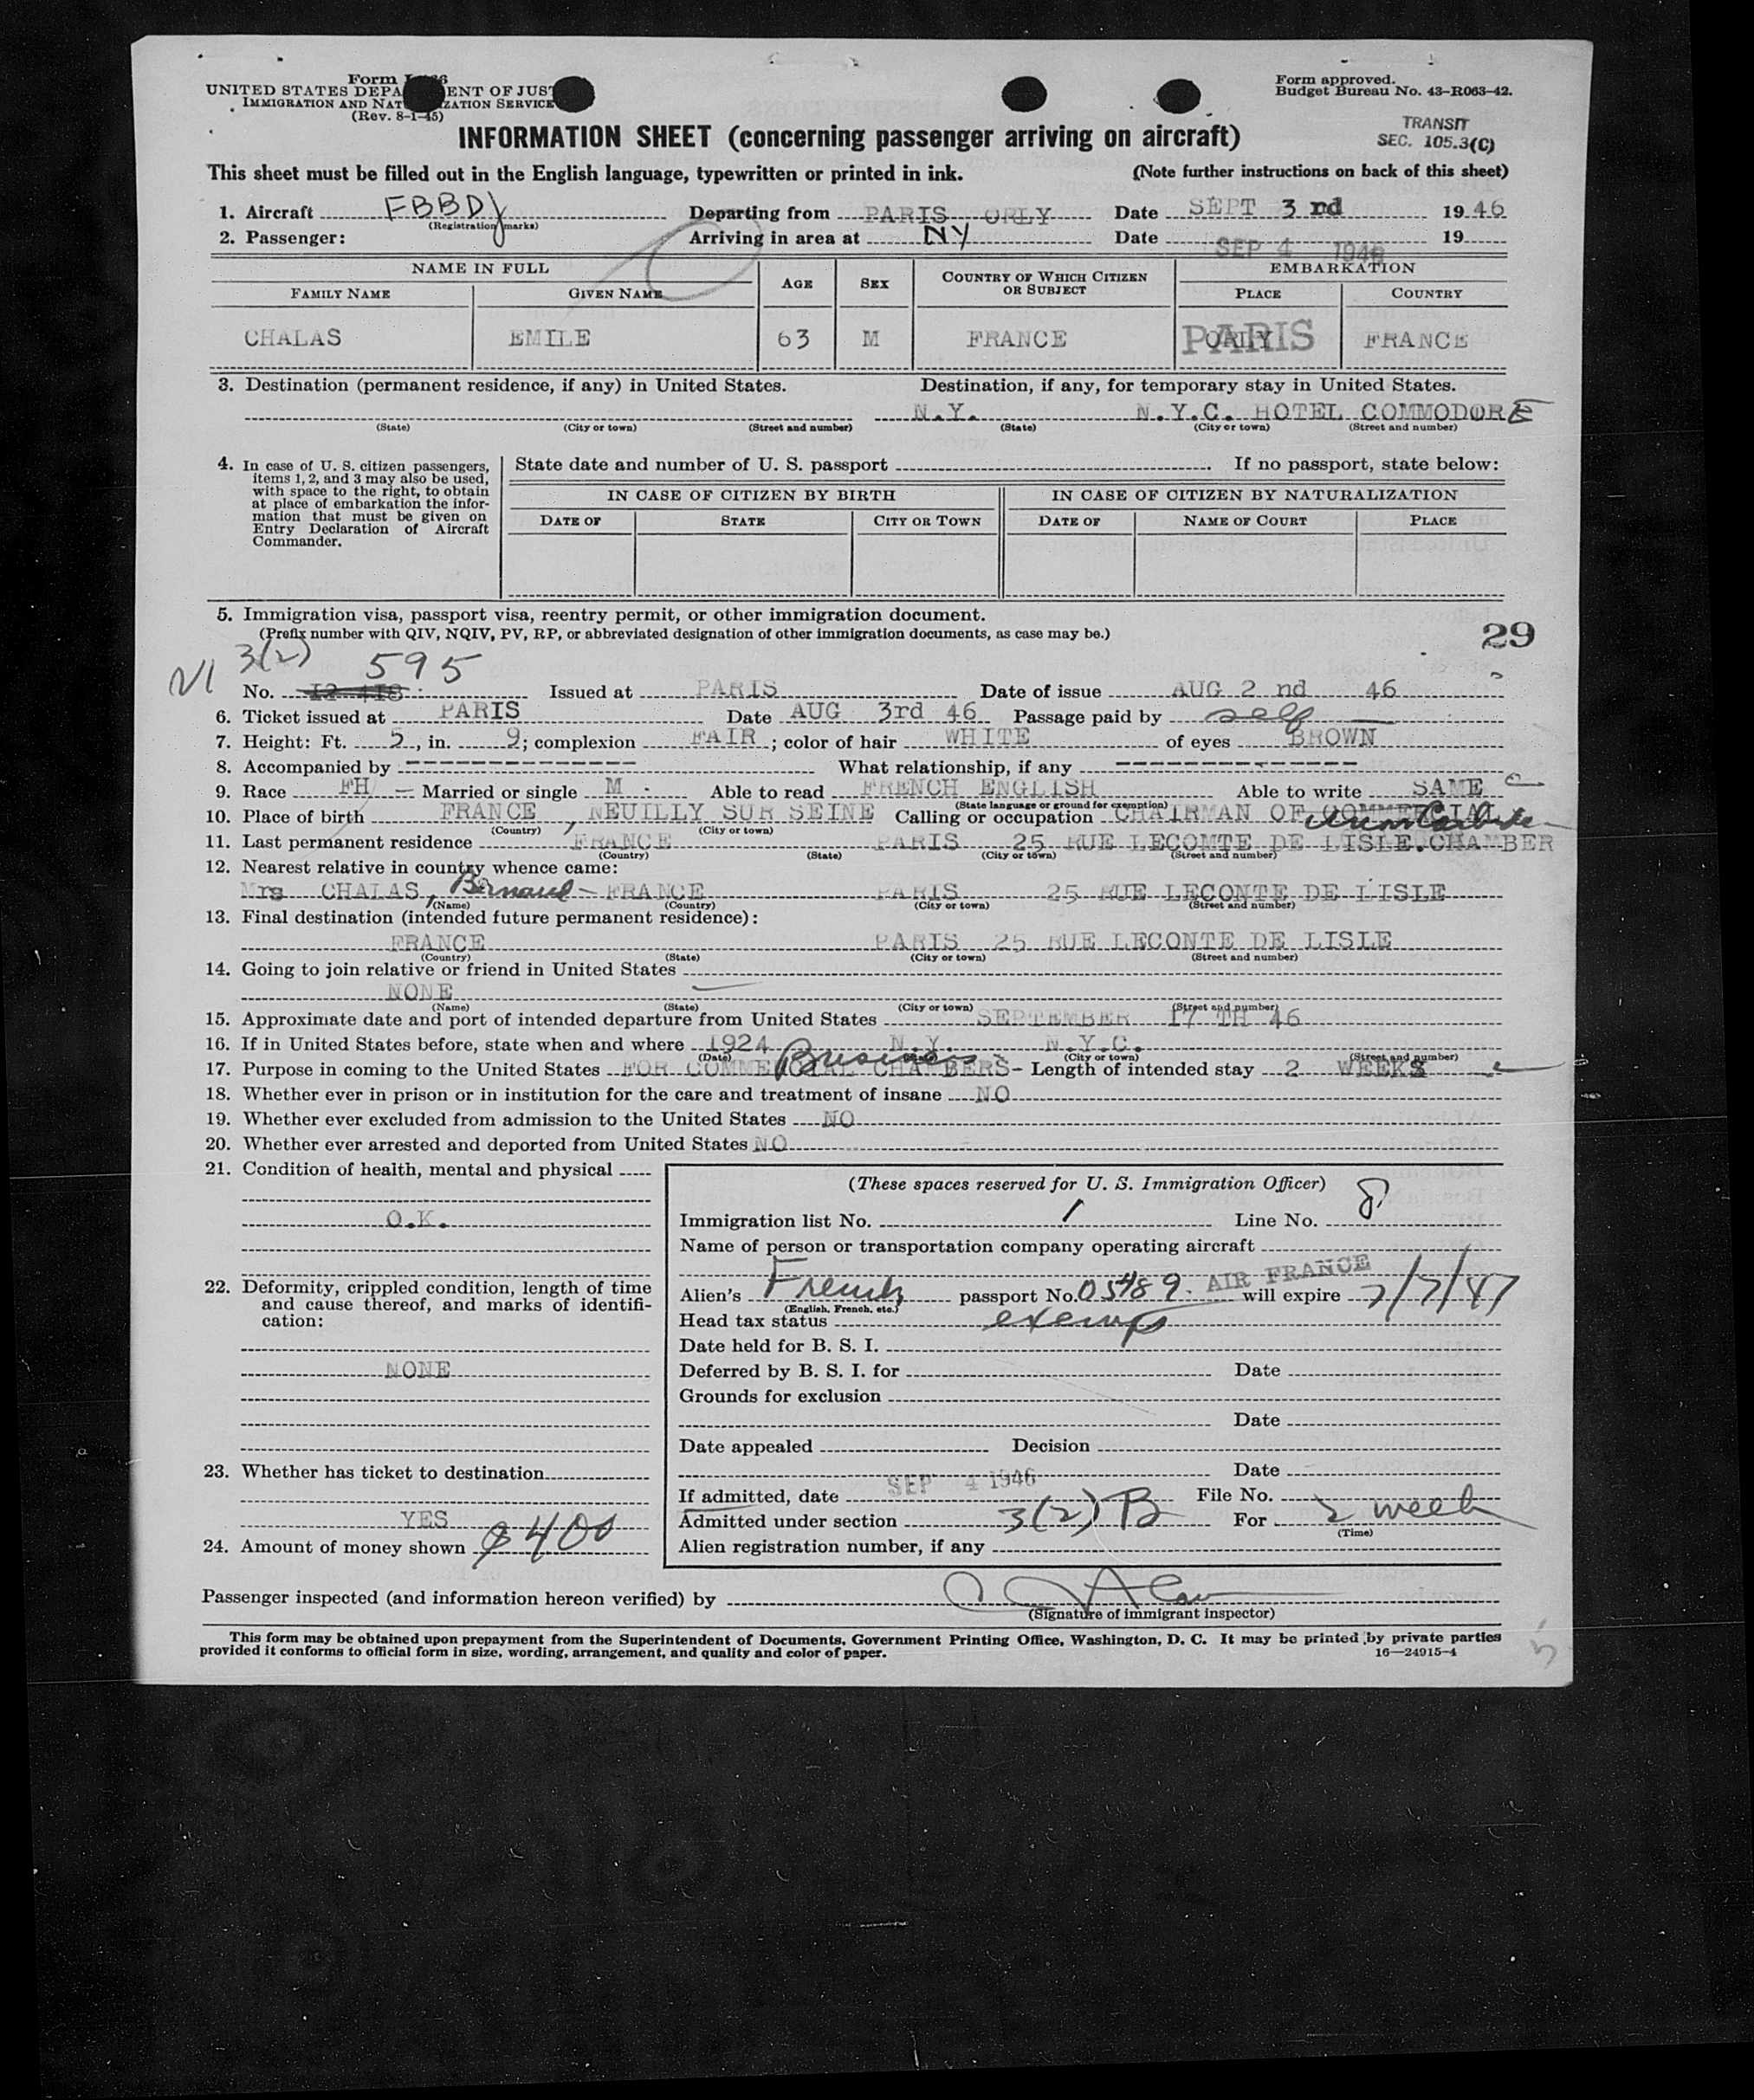 Form I-466
UNITED STATES DEPARTMENT OF JUSTICE
IMMIGRATION AND NATURALIZATION SERVICE
(Rev. 8-1-45)
Form approved.
Budget Bureau No. 43-R063-42.
TRANSIT
SEC. 105.3(C)
INFORMATION SHEET (concerning passenger arriving on aircraft)
This sheet must be filled out in the English language, typewritten or printed in ink. (Note further instructions on back of this sheet)
1. Aircraft FBBDJ Departing from PARIS ORLY Date SEPT 3 rd 19 46
(Registration marks)
2. Passenger: Arriving in area at NY Date SEP 4 1946 19
NAME IN FULL AGE SEX COUNTRY OF WHICH CITIZEN OR SUBJECT EMBARKATION
FAMILY NAME GIVEN NAME PLACE COUNTRY
CHALAS EMILE 63 M FRANCE ORLY PARIS FRANCE
3. Destination (permanent residence, if any) in United States. Destination, if any, for temporary stay in United States.
N.Y. N.Y.C. HOTEL COMMODORE
(State) (City or town) (Street and number) (State) (City or town) (Street and number)
4. In case of U. S. citizen passengers, items 1, 2, and 3 may also be used, with space to the right, to obtain at place of embarkation the information that must be given on Entry Declaration of Aircraft Commander.
State date and number of U. S. passport If no passport, state below:
IN CASE OF CITIZEN BY BIRTH IN CASE OF CITIZEN BY NATURALIZATION
DATE OF STATE CITY OR TOWN DATE OF NAME OF COURT PLACE
5. Immigration visa, passport visa, reentry permit, or other immigration document.
(Prefix number with QIV, NQIV, PV, RP, or abbreviated designation of other immigration documents, as case may be.)
29
3(2) 595
No. Issued at PARIS Date of issue AUG 2 nd 46
6. Ticket issued at PARIS Date AUG 3rd 46 Passage paid by self
7. Height: Ft. 5, in. 9; complexion FAIR; color of hair WHITE of eyes BROWN
8. Accompanied by What relationship, if any
9. Race FH Married or single M Able to read FRENCH ENGLISH Able to write SAME
(State language or ground for exemption)
10. Place of birth FRANCE, NEUILLY SUR SEINE Calling or occupation CHAIRMAN OF COMMERCIAL
(Country) (City or town)
11. Last permanent residence FRANCE PARIS 25 RUE LECOMTE DE LISLE. CHAMBER
(Country) (State) (City or town) (Street and number)
12. Nearest relative in country whence came:
Mrs CHALAS, FRANCE PARIS 25 RUE LECONTE DE LISLE
(Name) (Country) (City or town) (Street and number)
13. Final destination (intended future permanent residence):
FRANCE PARIS 25 RUE LECONTE DE LISLE
(Country) (State) (City or town) (Street and number)
14. Going to join relative or friend in United States
NONE
(Name) (State) (City or town) (Street and number)
15. Approximate date and port of intended departure from United States SEPTEMBER 17 TH 46
16. If in United States before, state when and where 1924 N.Y. N.Y.C.
(Date) (City or town) (Street and number)
17. Purpose in coming to the United States FOR COMMERCIAL CHAMBERS Business - Length of intended stay 2 WEEKS
18. Whether ever in prison or in institution for the care and treatment of insane NO
19. Whether ever excluded from admission to the United States NO
20. Whether ever arrested and deported from United States NO
21. Condition of health, mental and physical
O.K.
22. Deformity, crippled condition, length of time and cause thereof, and marks of identification:
NONE
23. Whether has ticket to destination
YES
24. Amount of money shown $400
(These spaces reserved for U. S. Immigration Officer)
Immigration list No. 1 Line No. 8
Name of person or transportation company operating aircraft
AIR FRANCE
Alien's French passport No. 05489 will expire 7/7/47
(English, French, etc.)
Head tax status exempt
Date held for B. S. I.
Deferred by B. S. I. for Date
Grounds for exclusion
Date
Date appealed Decision
Date
If admitted, date SEP 4 1946 File No.
Admitted under section 3(2) B For 2 week
(Time)
Alien registration number, if any
Passenger inspected (and information hereon verified) by
(Signature of immigrant inspector)
This form may be obtained upon prepayment from the Superintendent of Documents, Government Printing Office, Washington, D. C. It may be printed by private parties
provided it conforms to official form in size, wording, arrangement, and quality and color of paper. 16—24915-4